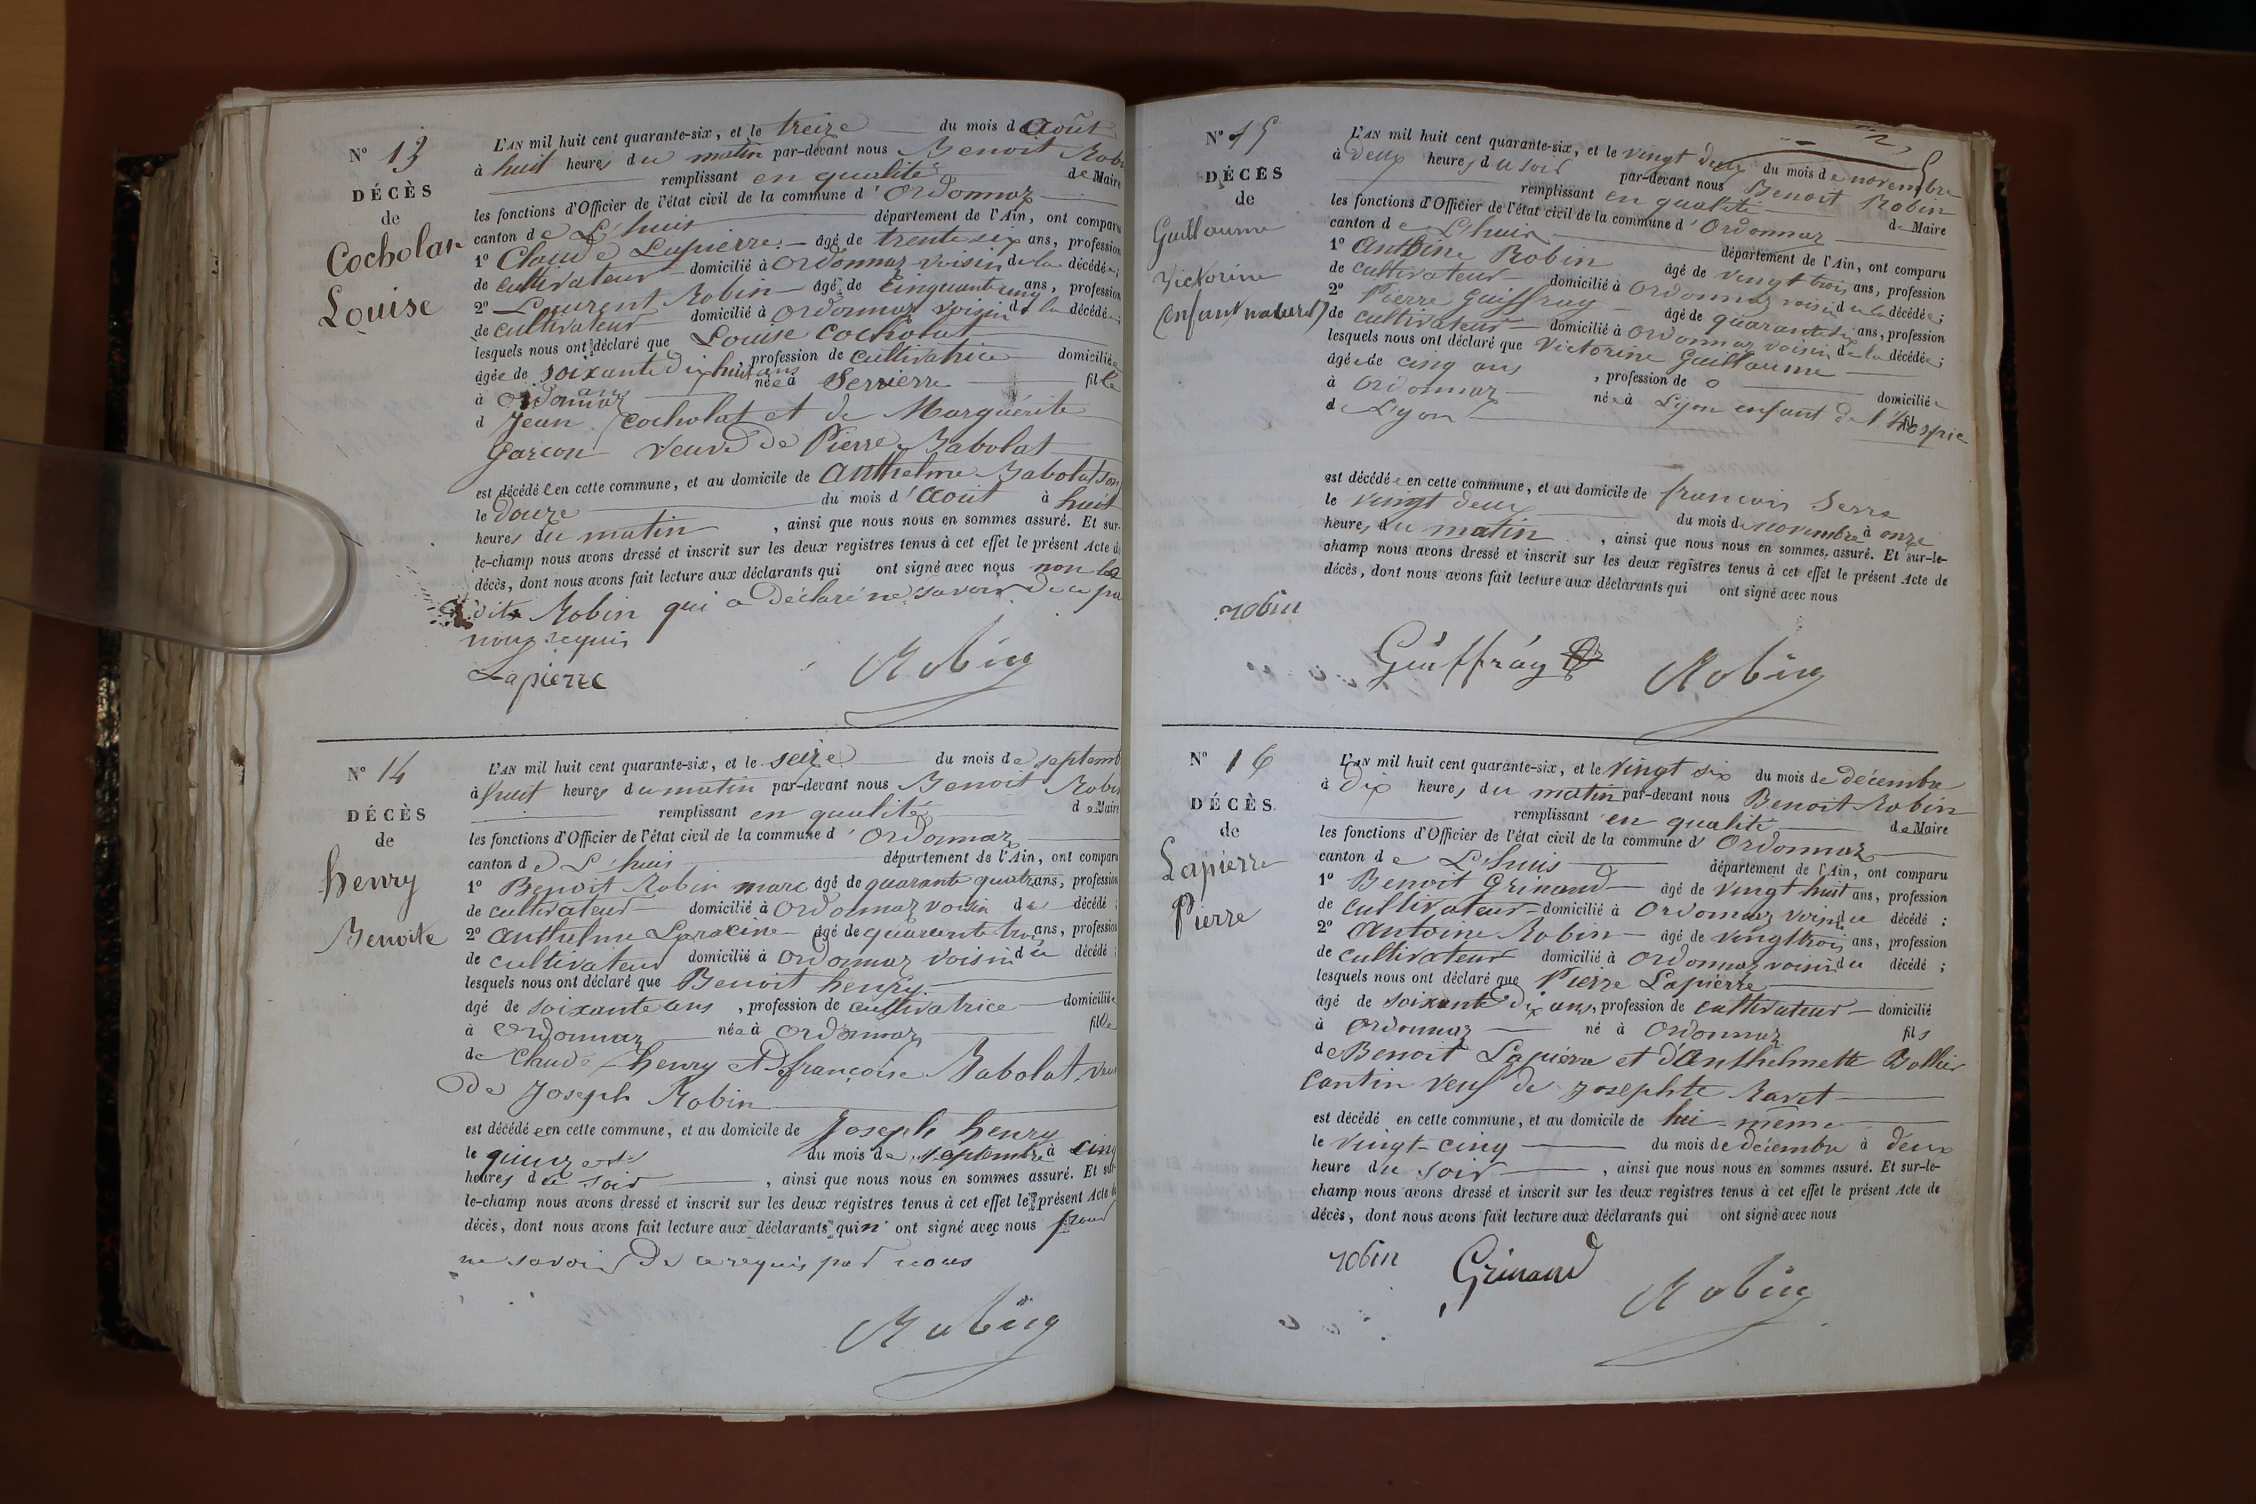 Nº 13
DÉCÈS
de
Cocholat
Louise
L'AN mil huit cent quarante-six, et le treize du mois d'Août
à huit heures du matin par-devant nous Benoit Robin
remplissant en qualité de Maire
les fonctions d'Officier de l'état civil de la commune d'Ordonnaz
canton de L'huis département de l'Ain, ont comparu
1º Claude Lapierre âgé de trente six ans, profession
de cultivateur domicilié à Ordonnaz voisin de la décédée;
2º Laurent Robin âgé de cinquante cinq ans, profession
de cultivateur domicilié à Ordonnaz voisin de la décédée;
lesquels nous ont déclaré que Louise Cocholat
âgée de soixante dix huit ans, profession de cultivatrice domiciliée
à Ordonnaz née à Serrierre fille
d Jean Cocholat et de Marguérite
Garçon veuve de Pierre Babolat
est décédée en cette commune, et au domicile de Anthelme Babolat son
le douze du mois d'Août à huit
heures du matin, ainsi que nous nous en sommes assuré. Et sur-
le-champ nous avons dressé et inscrit sur les deux registres tenus à cet effet le présent Acte de
décès, dont nous avons fait lecture aux déclarants qui ont signé avec nous non le
dit Robin qui a déclaré ne savoir de ce pa
nous requis
Lapierre Robin
Nº 14
DÉCÈS
de
henry
Benoite
L'AN mil huit cent quarante-six, et le seize du mois de septemb
à huit heures du matin par-devant nous Benoit Robin
remplissant en qualité de Maire
les fonctions d'Officier de l'état civil de la commune d'Ordonnaz
canton de L'huis département de l'Ain, ont comparu
1º Benoit Robin marc âgé de quarante quatre ans, profession
de cultivateur domicilié à Ordonnaz voisin du décédé;
2º anthelme Laracine âgé de quarante trois ans, profession
de cultivateur domicilié à Ordonnaz voisin du décédé;
lesquels nous ont déclaré que Benoit henry
âgé de soixante ans, profession de cultivatrice domiciliée
à Ordonnaz née à Ordonnaz fille
de Claude henry et de françoise Babolat
De Joseph Robin
est décédée en cette commune, et au domicile de Joseph henry
le quinze du mois de septembre à cinq
heures du soir, ainsi que nous nous en sommes assuré. Et sur-
le-champ nous avons dressé et inscrit sur les deux registres tenus à cet effet le présent Acte de
décès, dont nous avons fait lecture aux déclarants qui n'ont signé avec nous pour
ne savoir de ce requis par nous
Robin
Nº 15
DÉCÈS
de
Guillaume
Victorine
(enfant naturel)
L'AN mil huit cent quarante-six, et le vingt deux du mois de novembre
à deux heures du soir par-devant nous Benoit Robin
remplissant en qualité de Maire
les fonctions d'Officier de l'état civil de la commune d'Ordonnaz
canton de L'huis département de l'Ain, ont comparu
1º Antoine Robin âgé de vingt trois ans, profession
de cultivateur domicilié à Ordonnaz voisin de la décédée;
2º Pierre Guiffray âgé de quarante six ans, profession
de cultivateur domicilié à Ordonnaz voisin de la décédée;
lesquels nous ont déclaré que Victorine Guillaume
âgée de cinq ans, profession de o domiciliée
à Ordonnaz née à Lyon enfant de l'hospice
de Lyon
est décédée en cette commune, et au domicile de françois Serre
le vingt deux du mois de novembre à onze
heures du matin, ainsi que nous nous en sommes assuré. Et sur-le-
champ nous avons dressé et inscrit sur les deux registres tenus à cet effet le présent Acte de
décès, dont nous avons fait lecture aux déclarants qui ont signé avec nous
robin
Guiffray Robin
Nº 16
DÉCÈS
de
Lapierre
Pierre
L'AN mil huit cent quarante-six, et le vingt six du mois de décembre
à dix heures du matin par-devant nous Benoit Robin
remplissant en qualité de Maire
les fonctions d'Officier de l'état civil de la commune d'Ordonnaz
canton de L'huis département de l'Ain, ont comparu
1º Benoit Grinand âgé de vingt huit ans, profession
de cultivateur domicilié à Ordonnaz voisin du décédé;
2º Antoine Robin âgé de vingt trois ans, profession
de cultivateur domicilié à Ordonnaz voisin du décédé;
lesquels nous ont déclaré que Pierre Lapierre
âgé de soixante dix ans, profession de cultivateur domicilié
à Ordonnaz né à Ordonnaz fils
de Benoit Lapierre et d'Anthelmette Bollier
Cantin veuf de Josephte Ravet
est décédé en cette commune, et au domicile de lui-même
le vingt-cinq du mois de décembre à deux
heure du soir, ainsi que nous nous en sommes assuré. Et sur-le-
champ nous avons dressé et inscrit sur les deux registres tenus à cet effet le présent Acte de
décès, dont nous avons fait lecture aux déclarants qui ont signé avec nous
robin Grinand Robin